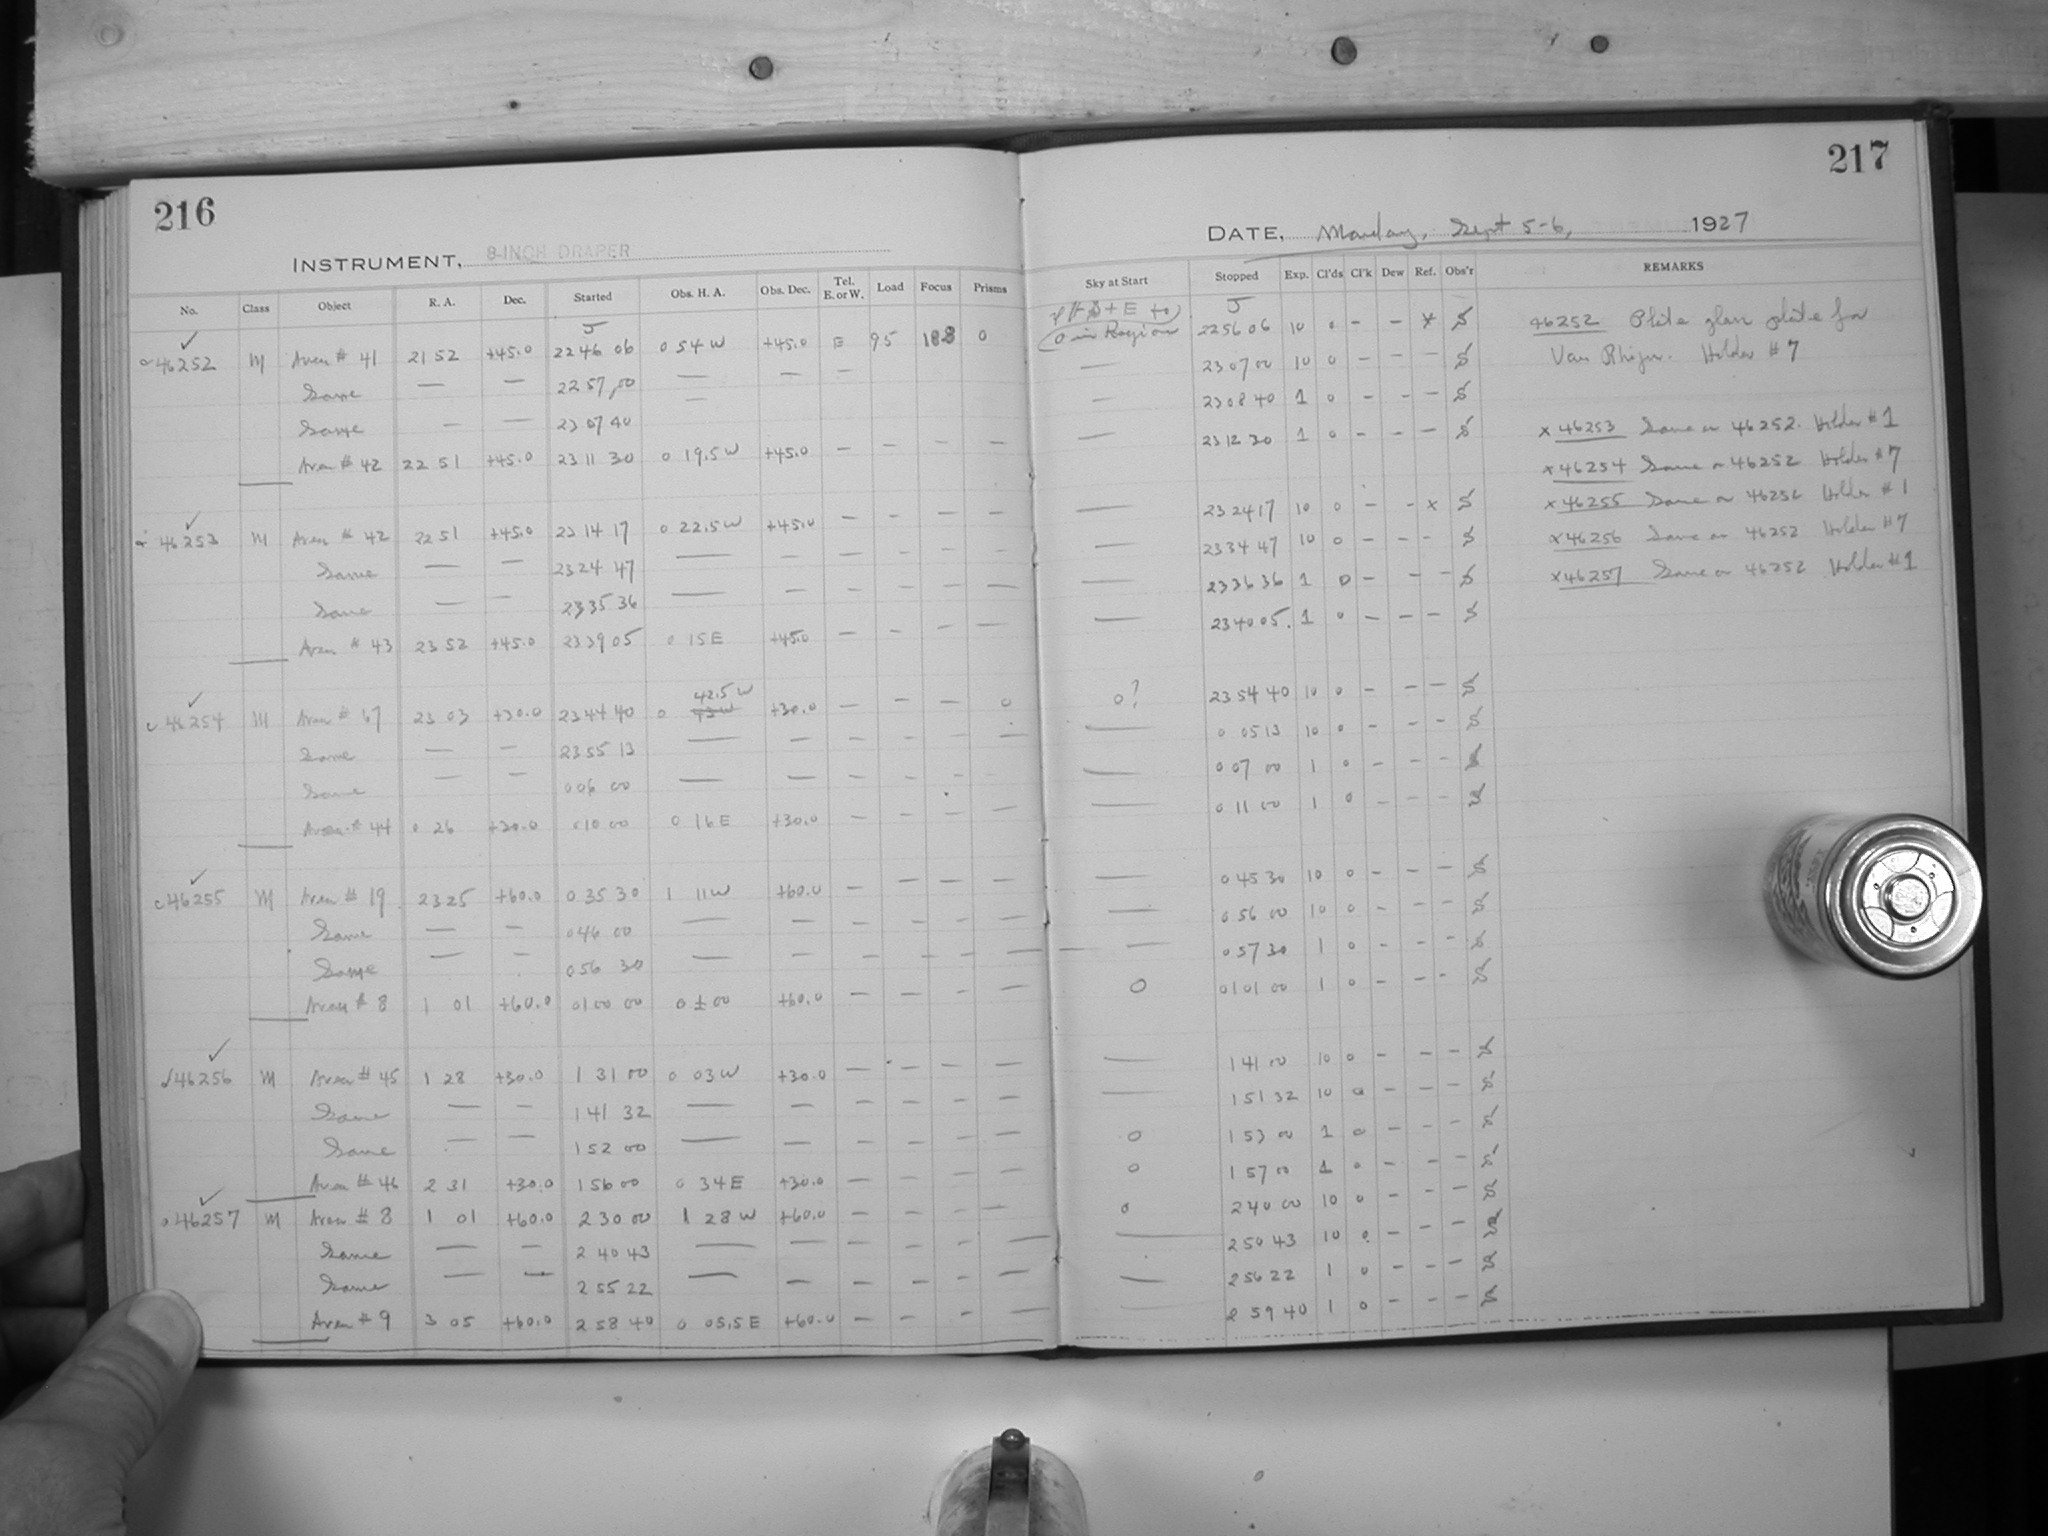 216
INSTRUMENT, 8-INCH DRAPER
No. Class Object R. A. Dec. Started Obs. H. A. Obs. Dec. Tel. E. or W. Load Focus Prisms
J
46252 M Area # 41 21 52 +45.0 22 46 06 0 54 W +45.0 E 95 188 0
Same — — 22 57 00 — — —
Same — — 23 07 40 —
Area # 42 22 51 +45.0 23 11 30 0 19.5 W +45.0 — — — —
46253 M Area # 42 22 51 +45.0 23 14 17 0 22.5 W +45.0 — — — —
Same — — 23 24 47 — — — — — —
Same — — 23 35 36 — — — — — —
Area # 43 23 52 +45.0 23 39 05 0 15 E +45.0 — — — —
42.5 W
46254 M Area # 67 23 03 +30.0 23 44 40 0 43 W +30.0 — — — 0
Same — — 23 55 13 — — — — — —
Same — — 0 06 00 — — — — —
Area # 44 0 26 +30.0 0 10 00 0 16 E +30.0 — — — —
46255 M Area # 19 23 25 +60.0 0 35 30 1 11 W +60.0 — — — —
Same — — 0 46 00 — — — — — —
Same — — 0 56 30 — — — — — —
Area # 8 1 01 +60.0 01 00 00 0 ± 00 +60.0 — — — —
46256 M Area # 45 1 28 +30.0 1 31 00 0 03 W +30.0 — — — —
Same — — 1 41 32 — — — — — —
Same — — 1 52 00 — — — — — —
Area # 46 2 31 +30.0 1 56 00 0 34 E +30.0 — — — —
46257 M Area # 8 1 01 +60.0 2 30 00 1 28 W +60.0 — — — —
Same — — 2 40 43 — — — — — —
Same — — 2 55 22 — — — — — —
Area # 9 3 05 +60.0 2 58 40 0 05.5 E +60.0 — — — —
217
DATE, Monday, Sept 5-6, 1927
Sky at Start Stopped Exp. Cl'ds Cl'k Dew Ref. Obs'r REMARKS
J
0 in Region 22 56 06 10 0 — — x S
— 23 07 00 10 0 — — — S
— 23 08 40 1 0 — — — S
— 23 12 30 1 0 — — — S
— 23 24 17 10 0 — — x S
— 23 34 47 10 0 — — — S
— 23 36 36 1 0 — — — S
— 23 40 05. 1 0 — — — S
0? 23 54 40 10 0 — — —
— 0 05 13 10 0 — — —
— 0 07 00 1 0 — — —
— 0 11 00 1 0 — — —
— 0 45 30 10 0 — — —
— 0 56 00 10 0 — — —
— 0 57 30 1 0 — — —
0 01 01 00 1 0 — — —
— 1 41 00 10 0 — — —
— 1 51 32 10 0 — — —
0 1 53 00 1 0 — — —
0 1 57 00 1 0 — — —
0 2 40 00 10 0 — — —
— 2 50 43 10 0 — — —
— 2 56 22 1 0 — — —
2 59 40 1 0 — — —
46252 Plate glass plate for
Van Rhijn. Holder # 7
x 46253 Same as 46252. Holder # 1
x 46254 Same as 46252 Holder # 7
x 46255 Same as 46252 Holder # 1
x 46256 Same as 46252 Holder # 7
x 46257 Same as 46252 Holder # 1